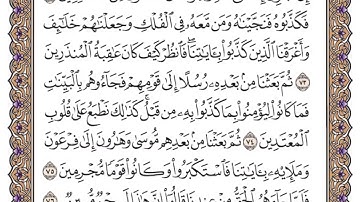 فَكَذَّبُوهُ فَنَجَّيْنَٰهُ وَمَن مَّعَهُۥ فِى ٱلْفُلْكِ وَجَعَلْنَٰهُمْ خَلَٰٓئِفَ
وَأَغْرَقْنَا ٱلَّذِينَ كَذَّبُوا۟ بِـَٔايَٰتِنَا ۖ فَٱنظُرْ كَيْفَ كَانَ عَٰقِبَةُ ٱلْمُنذَرِينَ
٧٣ ثُمَّ بَعَثْنَا مِنۢ بَعْدِهِۦ رُسُلًا إِلَىٰ قَوْمِهِمْ فَجَآءُوهُم بِٱلْبَيِّنَٰتِ
فَمَا كَانُوا۟ لِيُؤْمِنُوا۟ بِمَا كَذَّبُوا۟ بِهِۦ مِن قَبْلُ ۚ كَذَٰلِكَ نَطْبَعُ عَلَىٰ قُلُوبِ
ٱلْمُعْتَدِينَ ٧٤ ثُمَّ بَعَثْنَا مِنۢ بَعْدِهِم مُّوسَىٰ وَهَٰرُونَ إِلَىٰ فِرْعَوْنَ
وَمَلَإِي۟هِۦ بِـَٔايَٰتِنَا فَٱسْتَكْبَرُوا۟ وَكَانُوا۟ قَوْمًا مُّجْرِمِينَ ٧٥
فَلَمَّا جَآءَهُمُ ٱلْحَقُّ مِنْ عِندِنَا قَالُوٓا۟ إِنَّ هَٰذَا لَسِحْرٌ مُّبِينٌ ٧٦